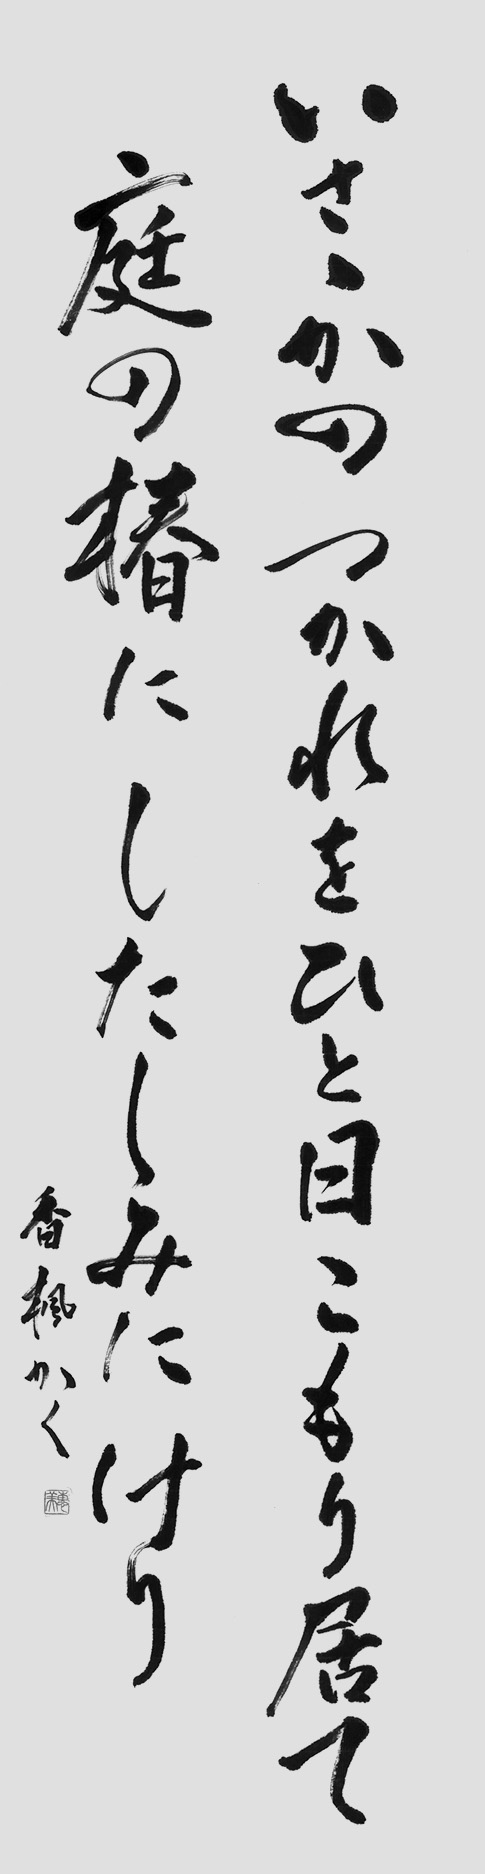 いさゝかのつかれをひと日こもり居て
庭の椿にしたしみにけり
香楓かく